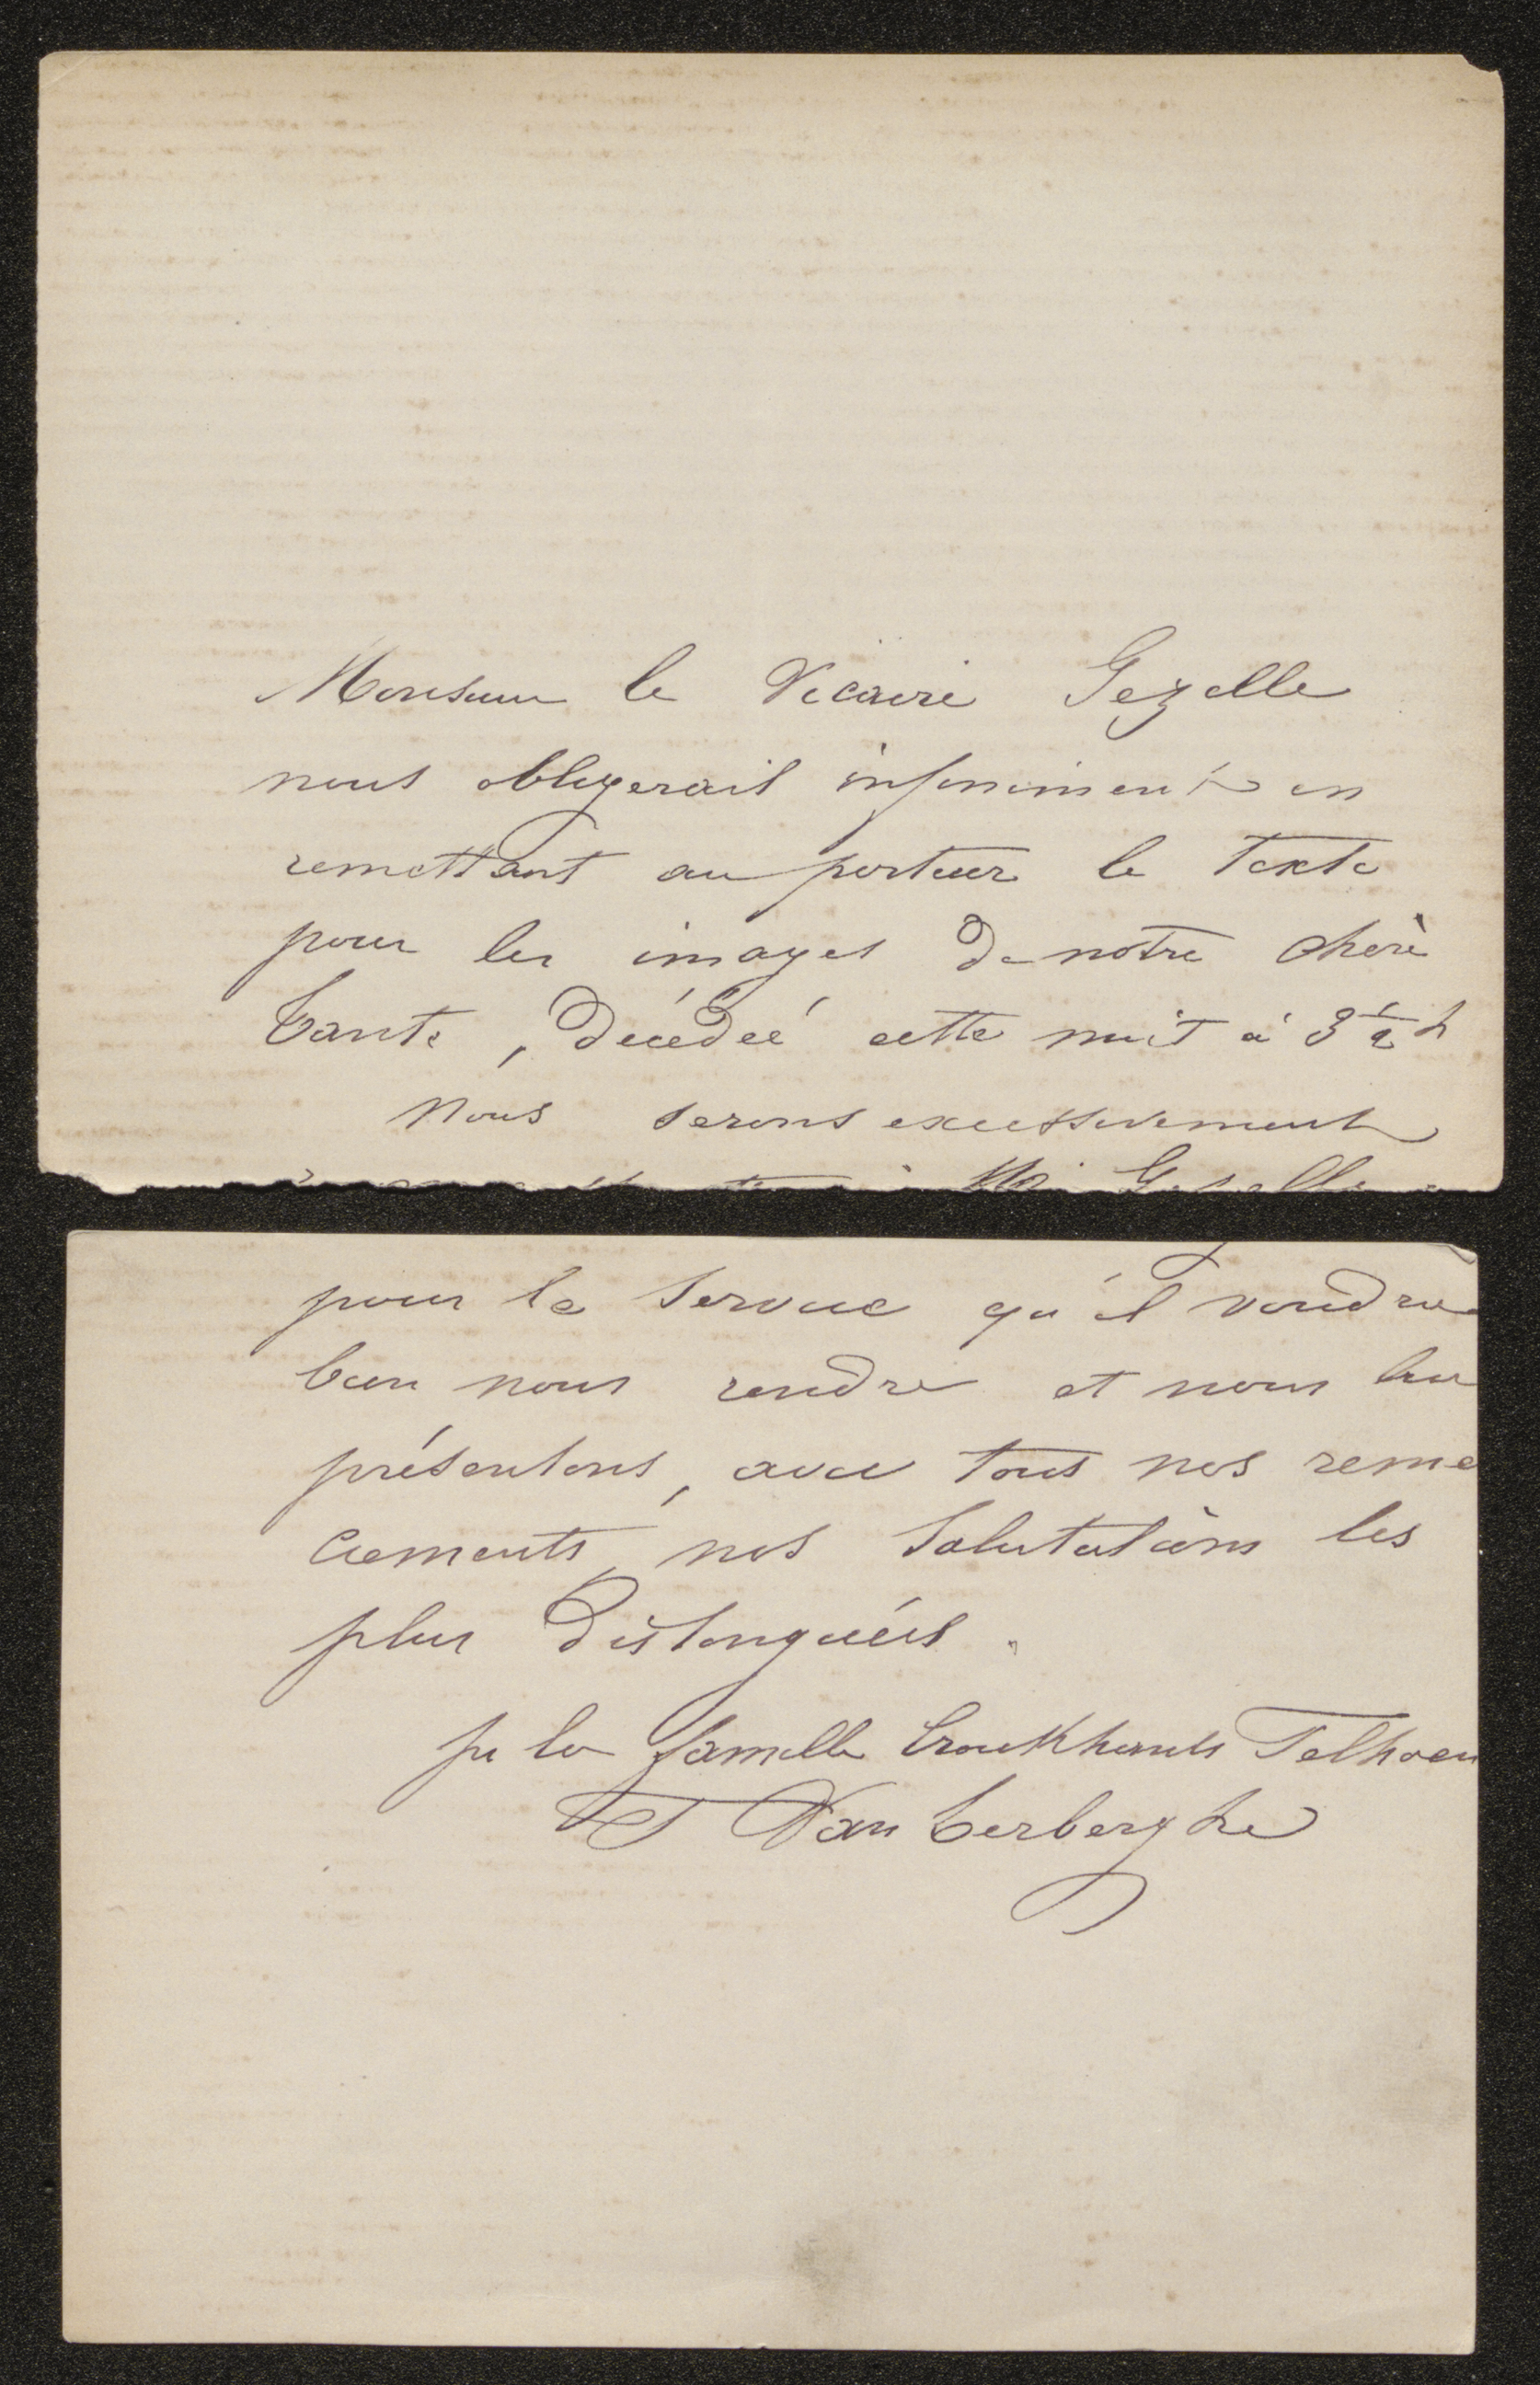 Monsieur le Vicaire Gezelle
nous obligerait infiniment en
remettant au porteur le texte
pour les images de notre chère
tante, décédée cette nuit à 3 1/2 h
Nous serons excessivement
à Mr Gezelle
pour le service qu'il voudra
bien nous rendre et nous lui
présentons, avec tous nos reme
ciements, nos salutations les
plus distinguées.
pr la famille
Van Cerberghe